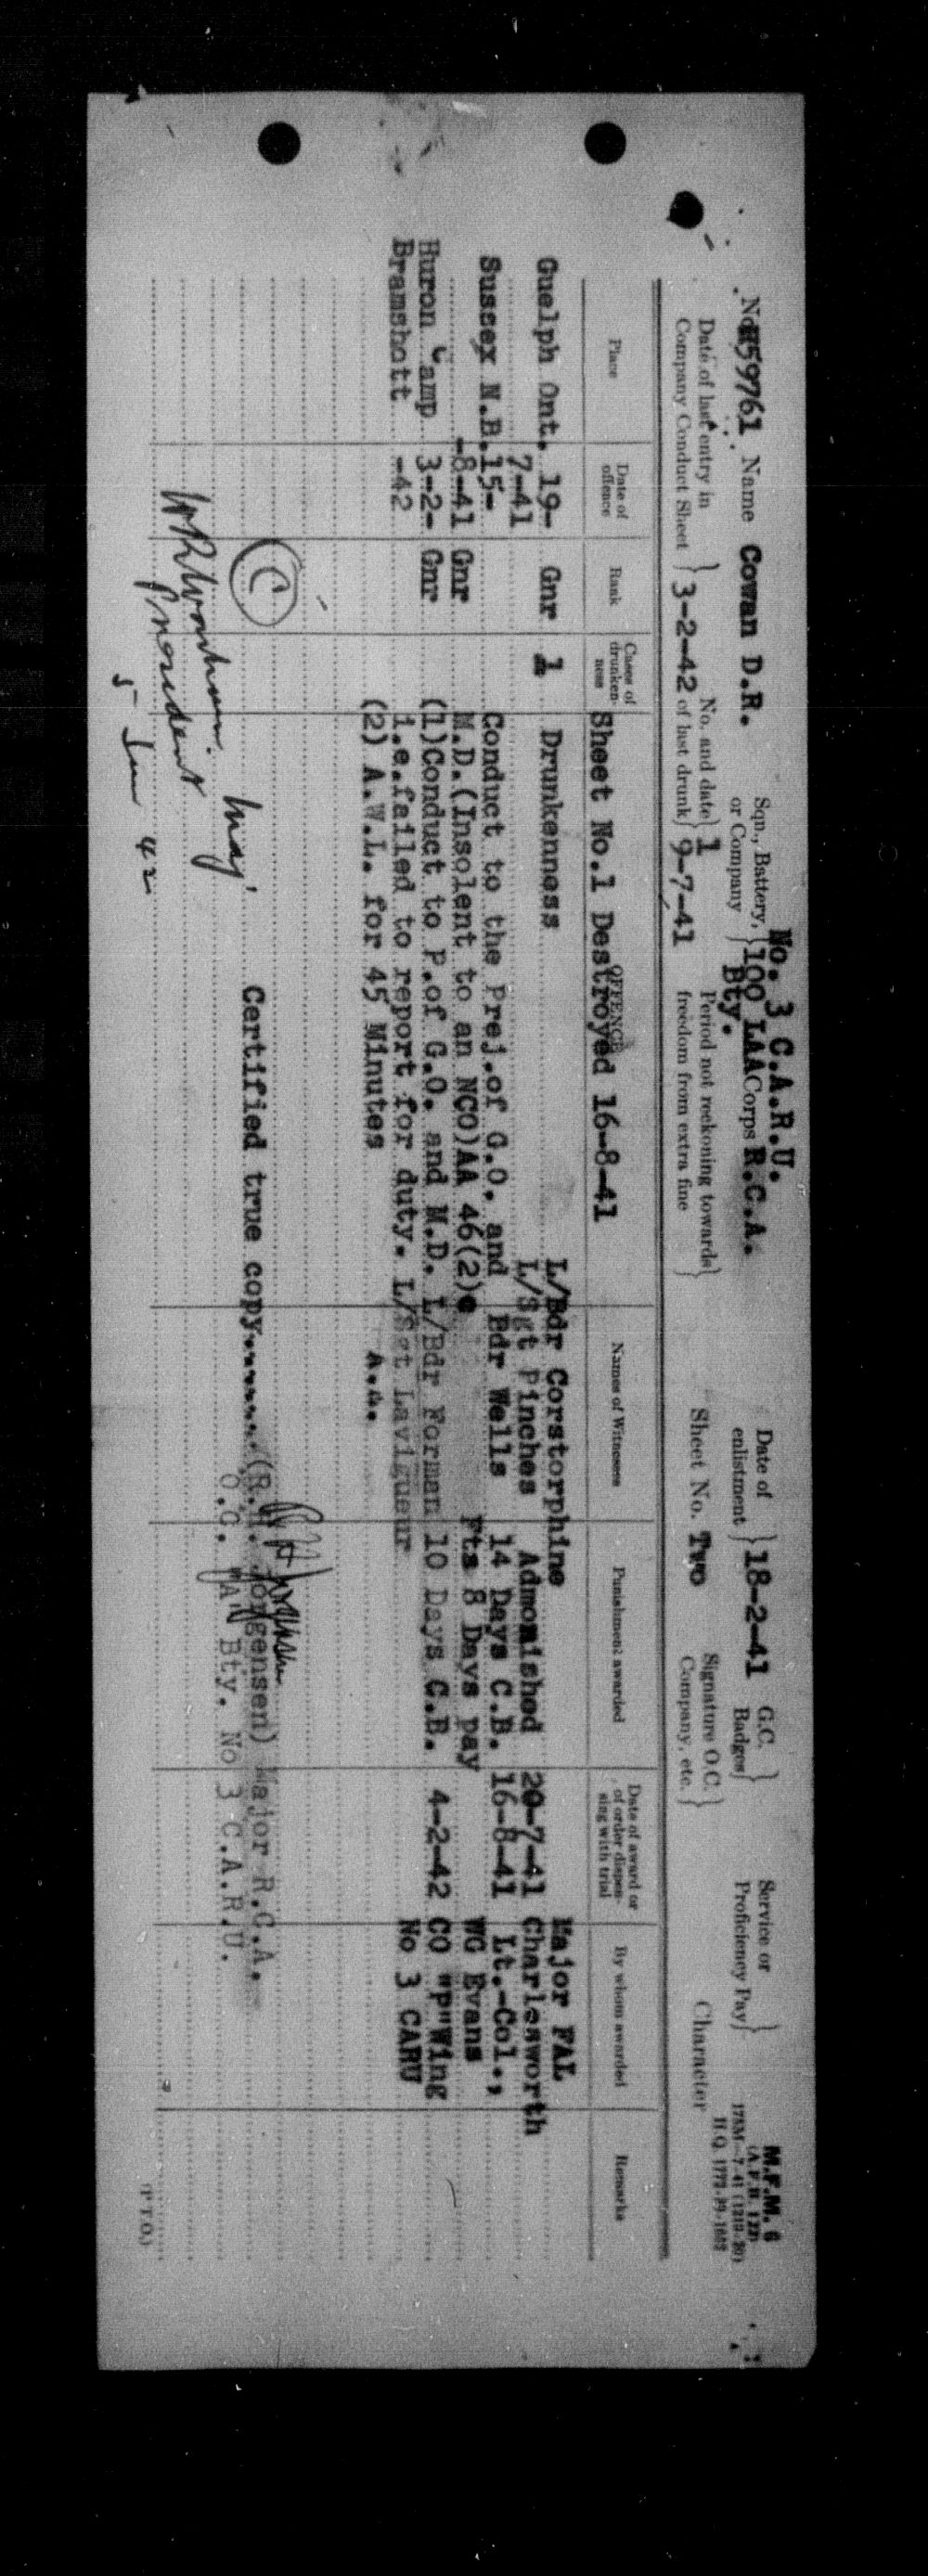 M.F.M. 6
(A.F.B. 122)
175M—7-41 (1219-20)
H.Q. 1772-39-1682
No. 3 C.A.R.U.
No. H59761 Name Cowan D.R. Sqn., Battery, or Company } 100 LAA Bty. Corps R.C.A. Date of enlistment } 18-2-41 G.C. Badges } Service or Proficiency Pay }
Date of last entry in Company Conduct Sheet } 3-2-42 No. and date of last drunk } 1 9-7-41 Period not reckoning towards freedom from extra fine } Sheet No. Two Signature O.C. Company, etc. } Character
Place Date of offence Rank Cases of drunkenness OFFENCE Names of Witnesses Punishment awarded Date of award or of order dispensing with trial By whom awarded Remarks
Sheet No.1 Destroyed 16-8-41
Guelph Ont. 19- Gnr 1 Drunkenness L/Bdr Corstorphine Major FAL
7-41 L/Sgt Pinches Admonished 20-7-41 Charlesworth
Sussex N.B. 15- Conduct to the Prej.of G.O. and Bdr Wells 14 Days C.B. 16-8-41 Lt.-Col.,
-8-41 Gnr M.D.(Insolent to an NCO)AA 46(2)c Fts 8 Days pay WG Evans
Huron Camp 3-2- Gnr (1)Conduct to P.of G.O. and M.D. L/Bdr Forman 10 Days C.B. 4-2-42 CO "P"Wing
Bramshott -42 i.e.failed to report for duty. L/Sgt Lavigueur No 3 CARU
(2) A.W.L. for 45 Minutes A.A.
C
Certified true copy........(R.H. Jorgensen) Major R.C.A.
O.C. "A" Bty. No 3 C.A.R.U.
Maj.
President
5 Jun 42
(P.T.O.)